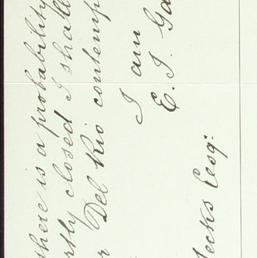 there is a probability
rtly closed I shall
r Del Rio contemp
I am
E. J. Ga
Jecks Esq: